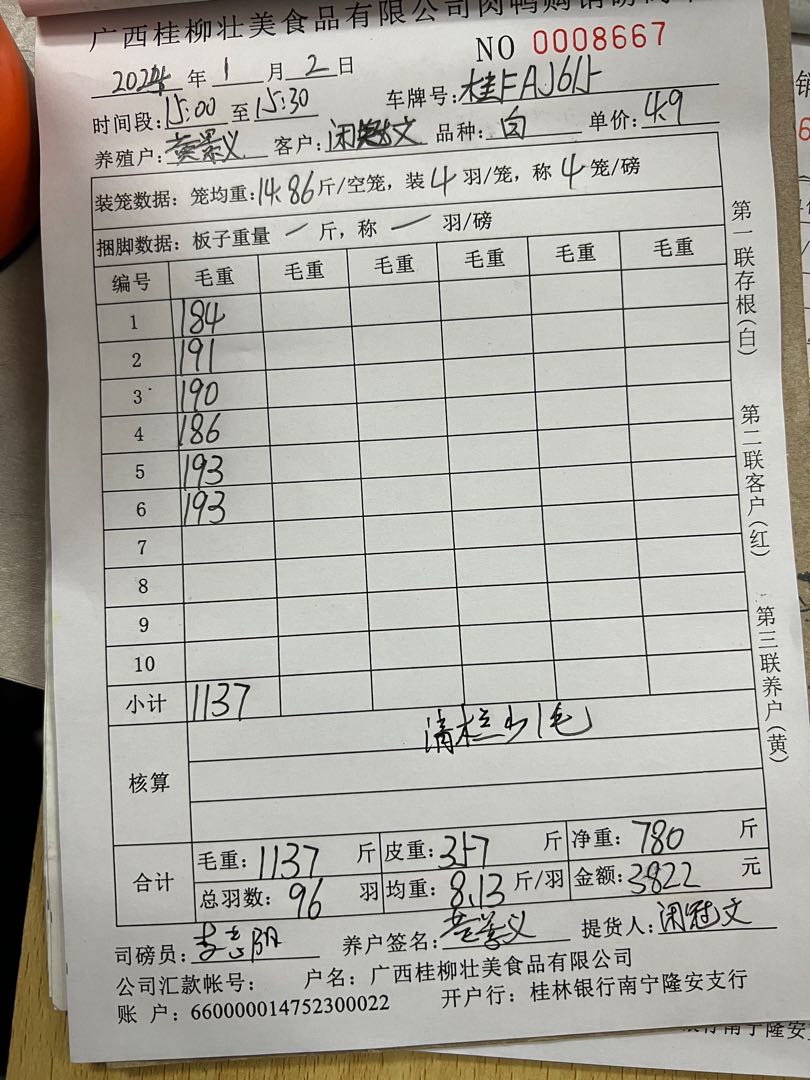 广西桂柳壮美食品有限公司肉鸭购销磅码单
NO 0008667
2024年1月2日
时间段:15:00至15:30 车牌号:桂FAJ615
养殖户:黄景义 客户:闲冠文 品种:白 单价:4.9
装笼数据:笼均重:14.86斤/空笼,装4羽/笼,称4笼/磅
捆脚数据:板子重量 一 斤,称 一 羽/磅
编号 毛重 毛重 毛重 毛重 毛重 毛重
1 184
2 191
3 190
4 186
5 193
6 193
7
8
9
10
小计 1137
核算
清栏少1毛
合计
毛重:1137斤 皮重:357斤 净重:780斤
总羽数:96羽 均重:8.13斤/羽 金额:3822元
司磅员: 养户签名:黄景义 提货人:闲冠文
公司汇款帐号: 户名:广西桂柳壮美食品有限公司
账 户:660000014752300022 开户行:桂林银行南宁隆安支行
第一联存根(白)
第二联客户(红)
第三联养户(黄)